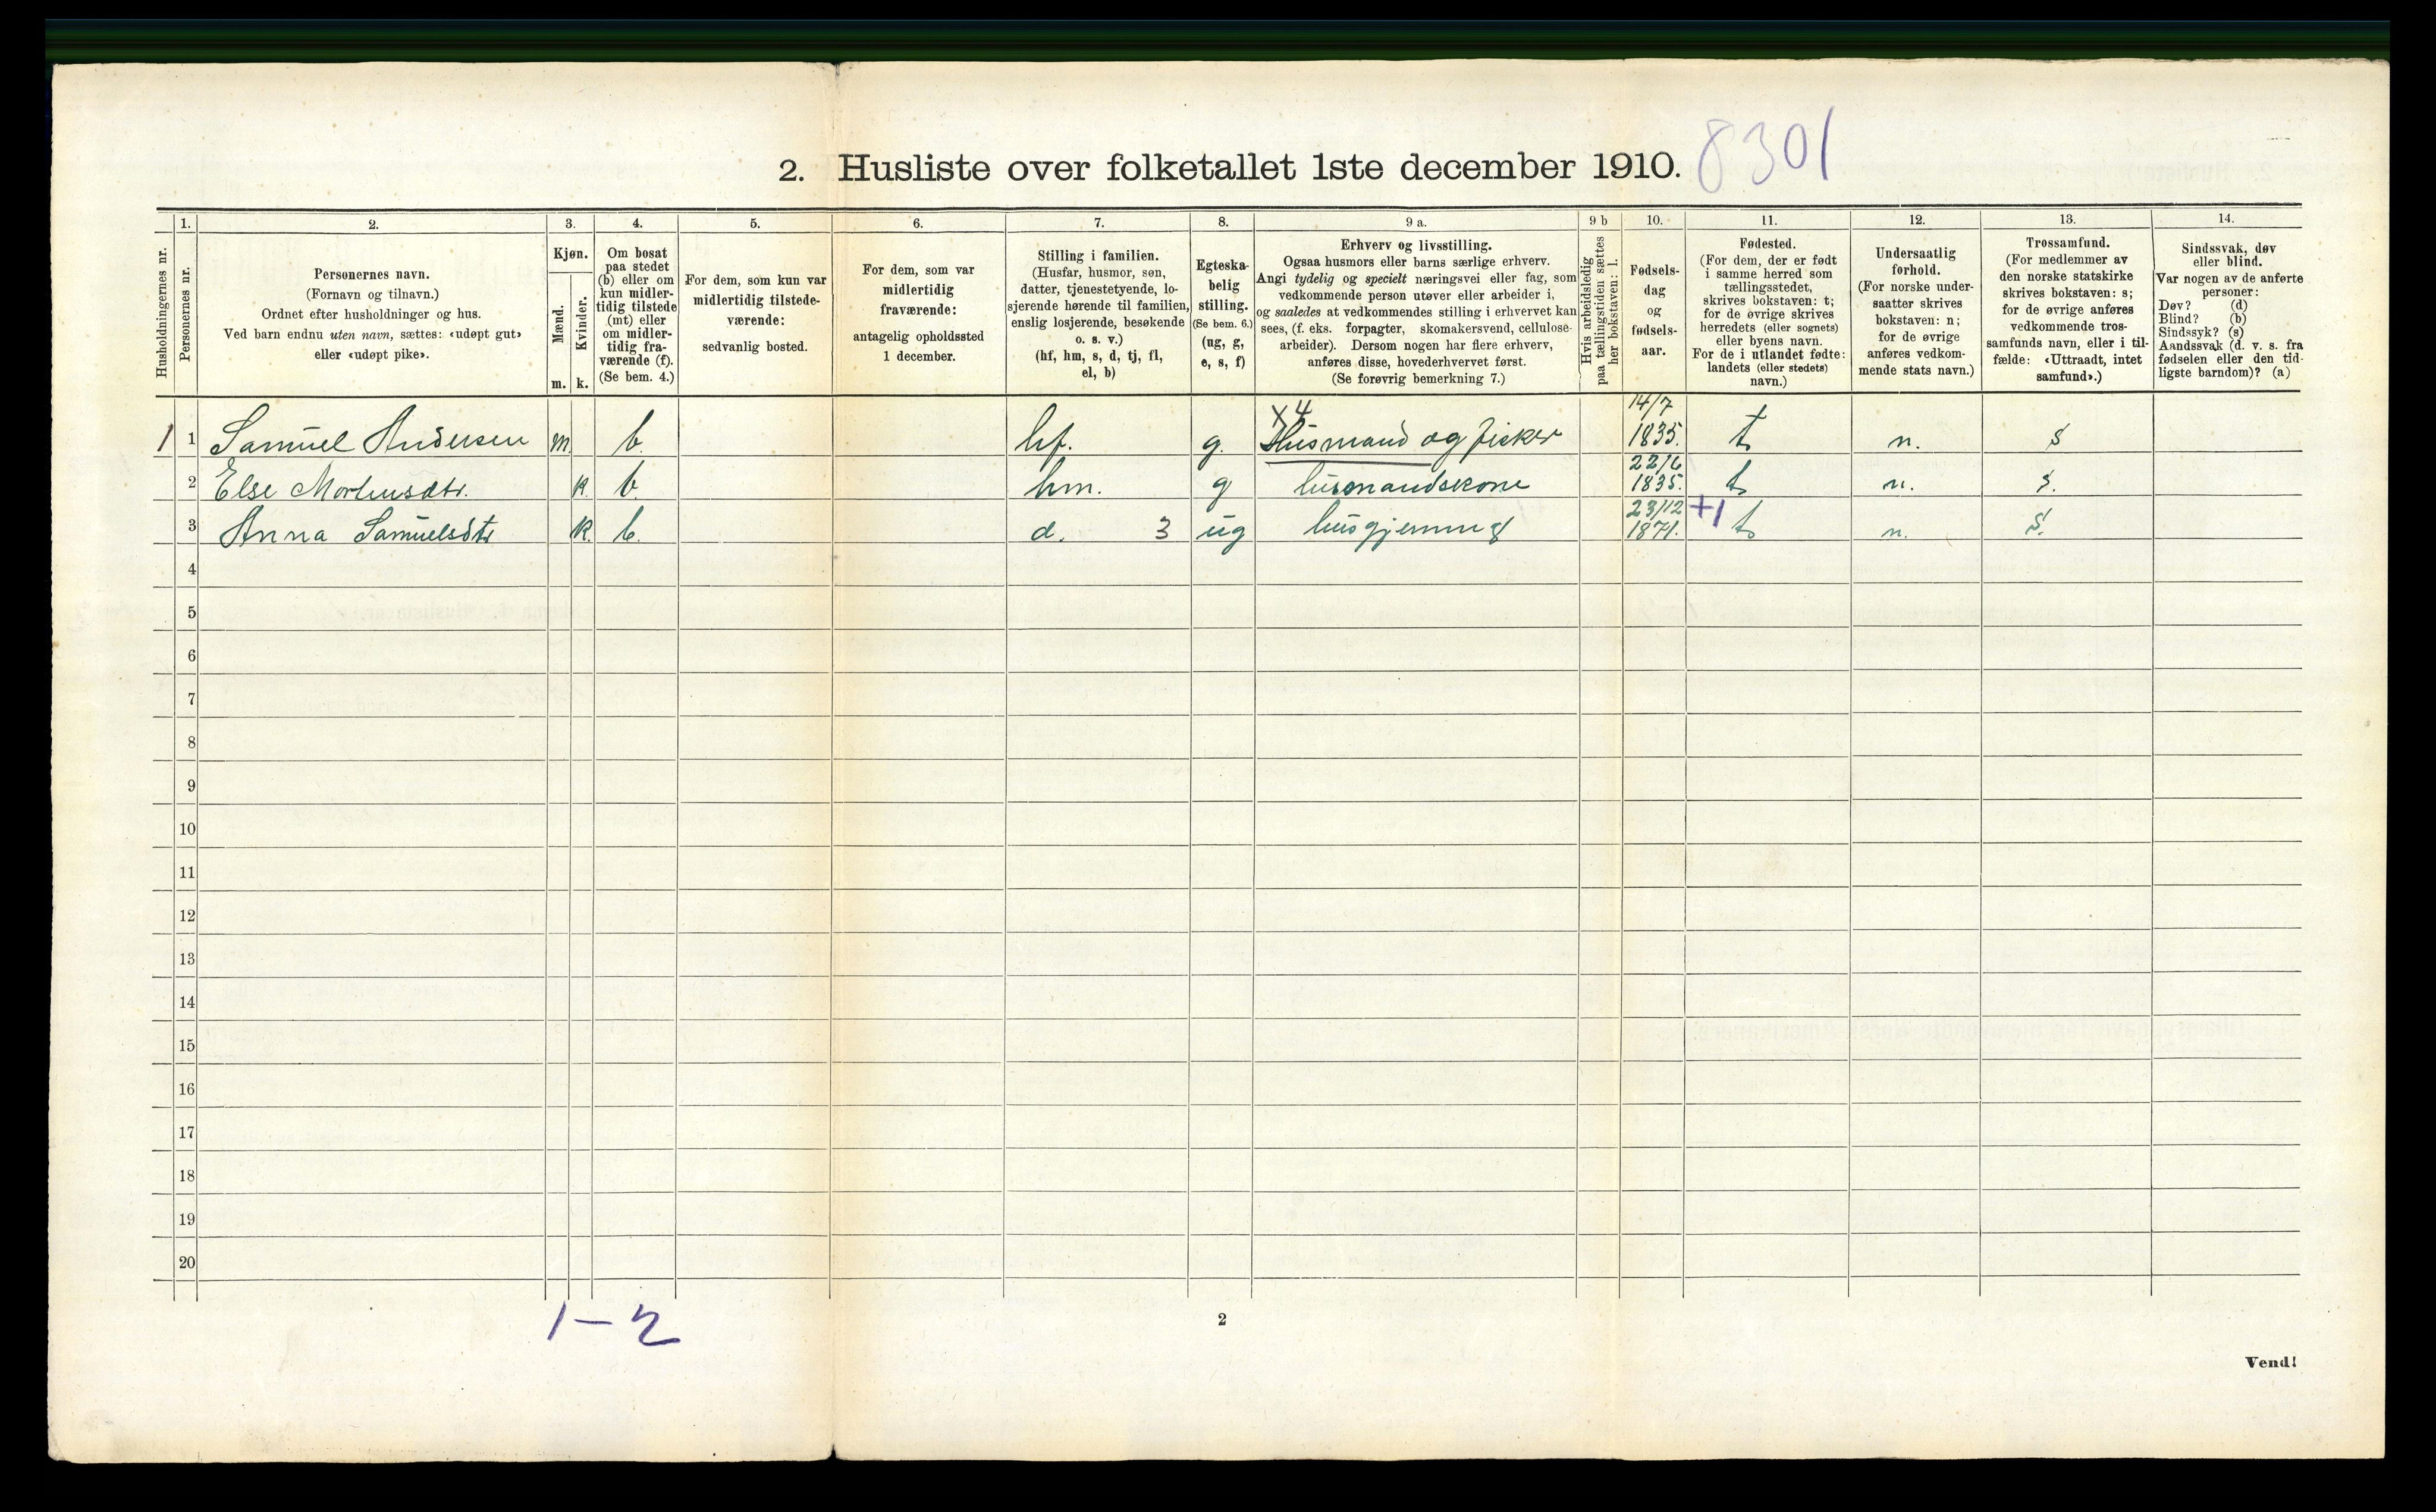 2. Husliste over folketallet 1ste december 1910. 8301
1. 2. 3. 4. 5. 6. 7. 8. 9 a. 9 b 10. 11. 12. 13. 14.
Husholdningernes nr.
Personernes nr.
Personernes navn.
(Fornavn og tilnavn.)
Ordnet efter husholdninger og hus.
Ved barn endnu uten navn, sættes: «udøpt gut»
eller «udøpt pike».
Kjøn.
Mænd.
Kvinder.
m. k.
Om bosat
paa stedet
(b) eller om
kun midler-
tidig tilstede
(mt) eller
om midler-
tidig fra-
værende (f).
(Se bem. 4.)
For dem, som kun var
midlertidig tilstede-
værende:
sedvanlig bosted.
For dem, som var
midlertidig
fraværende:
antagelig opholdssted
1 december.
Stilling i familien.
(Husfar, husmor, søn,
datter, tjenestetyende, lo-
sjerende hørende til familien,
enslig losjerende, besøkende
o. s. v.)
(hf, hm, s, d, tj, fl,
el, b)
Egteska-
belig
stilling.
(Se bem. 6.)
(ug, g,
e, s, f)
Erhverv og livsstilling.
Ogsaa husmors eller barns særlige erhverv.
Angi tydelig og specielt næringsvei eller fag, som
vedkommende person utøver eller arbeider i,
og saaledes at vedkommendes stilling i erhvervet kan
sees, (f. eks. forpagter, skomakersvend, cellulose-
arbeider). Dersom nogen har flere erhverv,
anføres disse, hovederhvervet først.
(Se forøvrig bemerkning 7.)
Hvis arbeidsledig
paa tællingstiden sættes
her bokstaven: l.
Fødsels-
dag
og
fødsels-
aar.
Fødested.
(For dem, der er født
i samme herred som
tællingsstedet,
skrives bokstaven: t;
for de øvrige skrives
herredets (eller sognets)
eller byens navn.
For de i utlandet fødte:
landets (eller stedets)
navn.)
Undersaatlig
forhold.
(For norske under-
saatter skrives
bokstaven: n;
for de øvrige
anføres vedkom-
mende stats navn.)
Trossamfund.
(For medlemmer av
den norske statskirke
skrives bokstaven: s;
for de øvrige anføres
vedkommende tros-
samfunds navn, eller i til-
fælde: «Uttraadt, intet
samfund».)
Sindssvak, døv
eller blind.
Var nogen av de anførte
personer:
Døv? (d)
Blind? (b)
Sindssyk? (s)
Aandssvak (d. v. s. fra
fødselen eller den tid-
ligste barndom)? (a)
x4 14/7
1 1 Samuel Andersen m. b. hf. g. Husmand og fisker 1835. t n. s
22/6
2 Else Mortensdtr. k. b. hm. g husmandskone 1835. t n. s.
23/12 +1
3 Anna Samuelsdtr k. b. d. 3 ug husgjerning 1871. t n. s.
4
5
6
7
8
9
10
11
12
13
14
15
16
17
18
19
20
1 – 2
2
Vend!